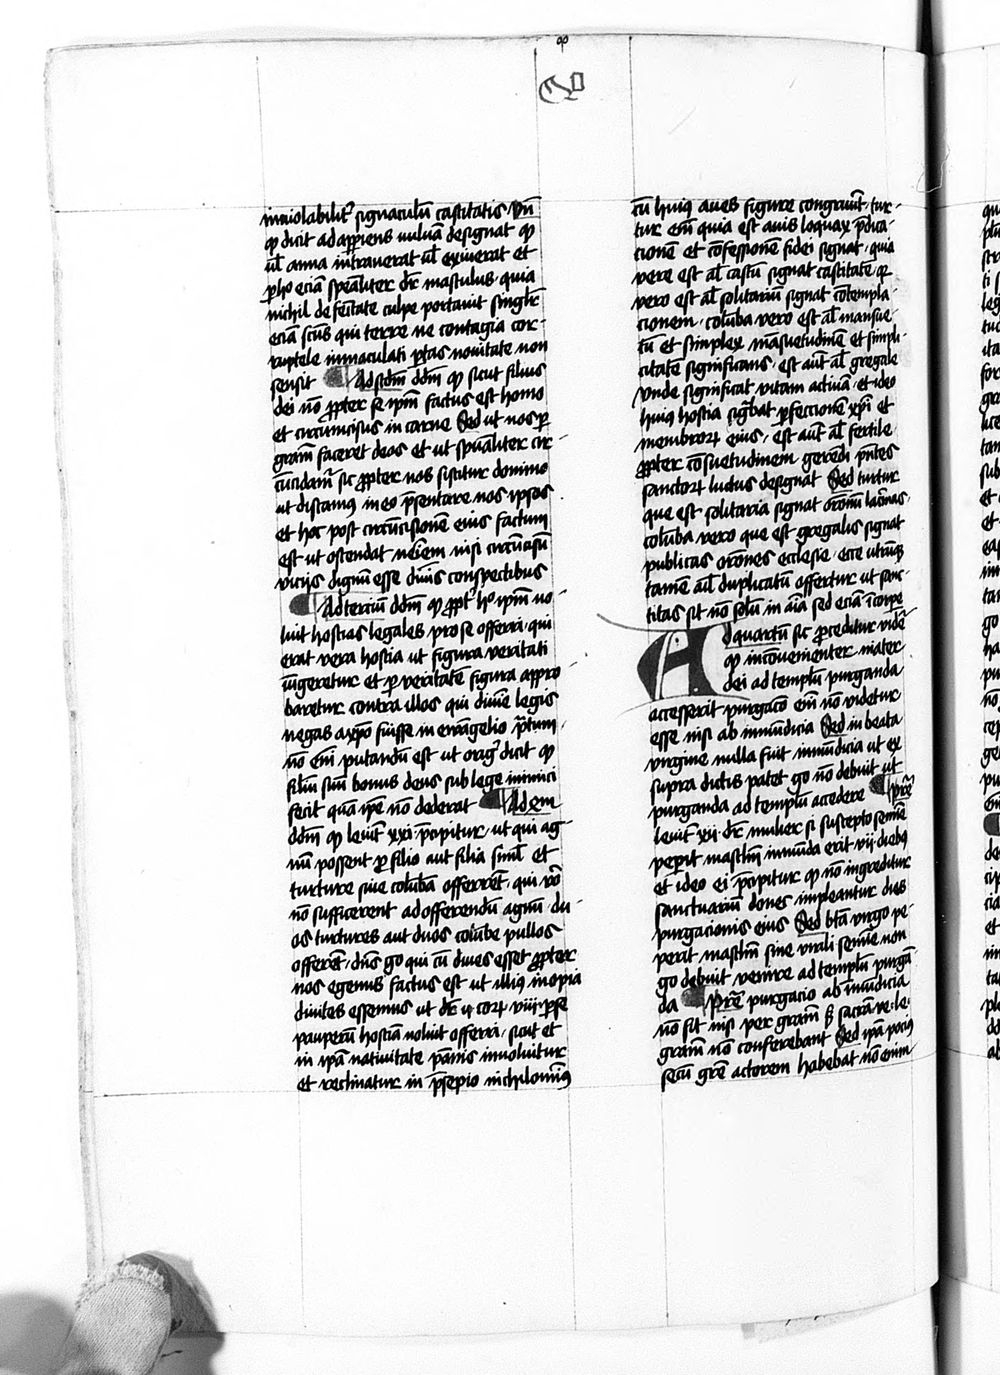 inuiolabiliť signaculū castitatis Vn̄
qꝫ dicit adapperiens uuluā designat qꝫ
ul̄ anna intrauerat ul̄ exiuerat et
ꝑ hͦ eciā spēaliter dr̄ masculus quia
nichil de fetitate culpe portauit singlr̄
eciā scūs qui terre ne contagia cor-
ruptele inmaculati ꝑtus nouitate non
sensit Ad scdm ddm qꝫ sicut filius
dei nō ꝓpter se ipm̄ factus est homo
et circumcisus in carne Sed ut nos ꝑ
grām faceret deos et ut spūaliter cir-
cūcidamr̄ sic ꝓpter nos sistitur domino
ut discamus in eo p̄sentare nos ipsos
et hoc post circūcisionē eius factum
est ut ostendat neīem nisi circūcisū
vicijs dignū esse diuīs conspectibus
Ad terciū ddm qꝫ ꝓpt̄ hͦ ipm̄ uo-
luit hostias legales pro se offerri qui
erat vera hostia ut figura veritati
iūgeretur et ꝑ veritatē figura appro
baretur contra illos qui diuīe legis
negas a xp̄o fuisse in ewāgelio p̄tum
nō em̄ putandū est ut oriḡ dicit qꝫ
filiū suū bonus deus sub lege inimici
fecit quā ipē nō dederat Ad 4m
ddm qꝫ leuit̄ xxi p̄cipitur ut qui ag-
nū possent ꝑ filio aut filia simul et
turture siue colūba offerrēt qui v̄o
nō sufficerent ad offerendū agnū du-
os turtures aut duos colūbe pullos
offerēt dn̄s gͦ qui cū diues esset ꝓpter
nos egenus factus est ut illiꝰ inopia
diuites essemus ut dr̄ ij corꝝ viij ꝑ se
pauperū hostiam uoluit offerri sicut et
in ipā natiuitate pannis inuoluitur
et reclinatur in p̄sepio nichilominꝰ
cū huiꝰ aues figure congruūt tur-
tur em̄ quia est auis loquax p̄dica-
cionē et cōfessionē fidei signat quia
vere est al̄ castū signat castitatē qꝛ
vero est al̄ solitariū signat cōtempla-
cionem colūba vero est al̄ mansue-
tū et simplex māsuetudinē et simpli-
citatē significans est aut̄ al̄ gregale
vnde significat vitam actiuā et ideo
huiꝰ hostia sig̅bat ꝑfeccionē xp̄i et
membroꝝ eius est aut̄ al̄ fertile
ꝓpter cōsuetudinem gerēdi p̄ntes
sanctoꝝ luctus designat Sed turtur
que est solitaria signat orōnū lac̄mas
colūba vero que est gregalis signat
publicas orōnes ecclesie ecce utrūqꝫ
tamē aīal duplicatū offertur ut sanc-
titas sit nō solū in aīa sed eciā ī corꝑe
Ad quartū sic ꝓceditur vidē
qꝫ inconuenienter mater
dei ad templū purganda
accesserit purgacō em̄ nō videtur
esse nisi ab inmūdicia Sed in beata
virgine nulla fuit inmūdicia ut ex
supra dictis patet gͦ nō debuit ut
purganda ad templū accedere Pre͞
leuit̄ xij dr̄ mulier si suscepto semīe
peperit masclm̄ inmūda erit vij diebꝰ
et ideo ei p̄cipitur qꝫ nō ingreditur
sanctuariū donec impleantur dies
purgacionis eius Sed bt̄a virgo pe-
perit masclm̄ sine virili semīe non
gͦ debuit venire ad templū purgā
da Pre͞ purgacio ab inmūdicia
nō fit nisi per grām ß sacrāᵗᵃ ve. le.
grām nō conferebant Sed ipā pociꝰ
secū grē actorem habebat nō enim